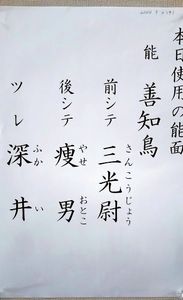 本日使用の能面
能 善知鳥
前シテ 三光尉
さんこうじょう
後シテ 痩男
やせ おとこ
ツレ 深井
ふか い